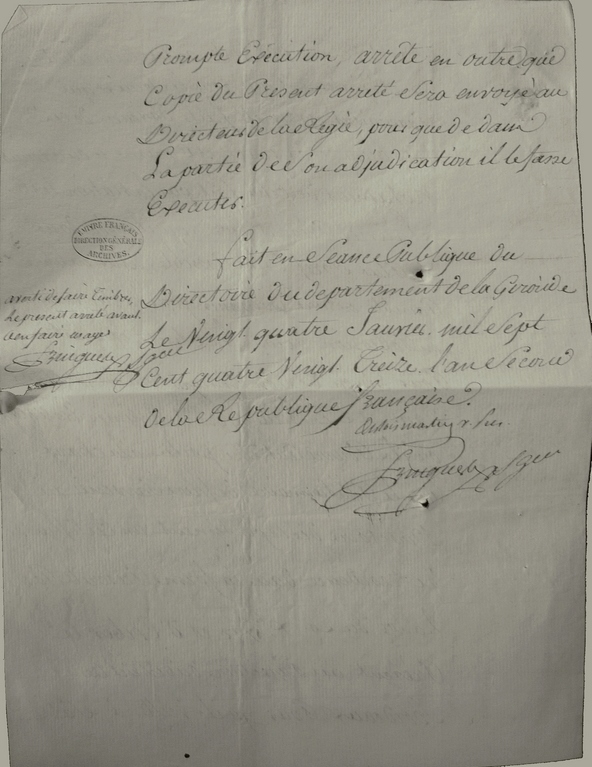 Prompte Execution, arrête en outre que
Copie du Present arrêté Sera envoyé au
Directeur de la Régie, pour que de dans
La partie de Son adjudication il le fasse
Executer.
EMPIRE FRANÇAIS
DIRECTION GÉNÉRALE
DES
ARCHIVES.
fait en Seance Publique du
Directoire du departement de la Gironde
Le Vingt quatre Janvier mil Sept
Cent quatre Vingt Treize l'an Second
de la Republique française.
averti de faire Timbrer
Le present arrêté avant
d'en faire usage